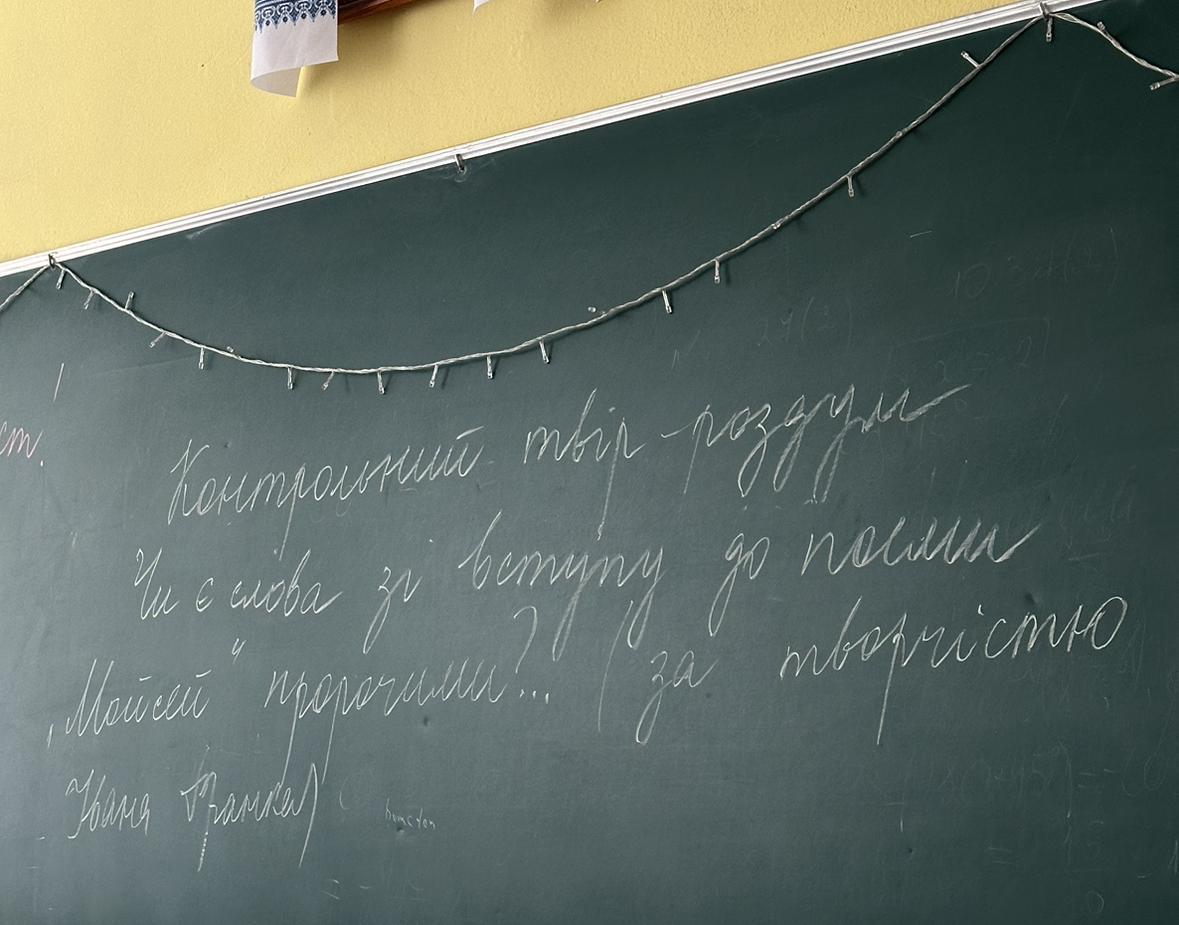 ст.
Контрольний твір-роздум
Чи є слова зі вступу до поеми
„Мойсей" пророчими?... (за творчістю
Івана Франка)